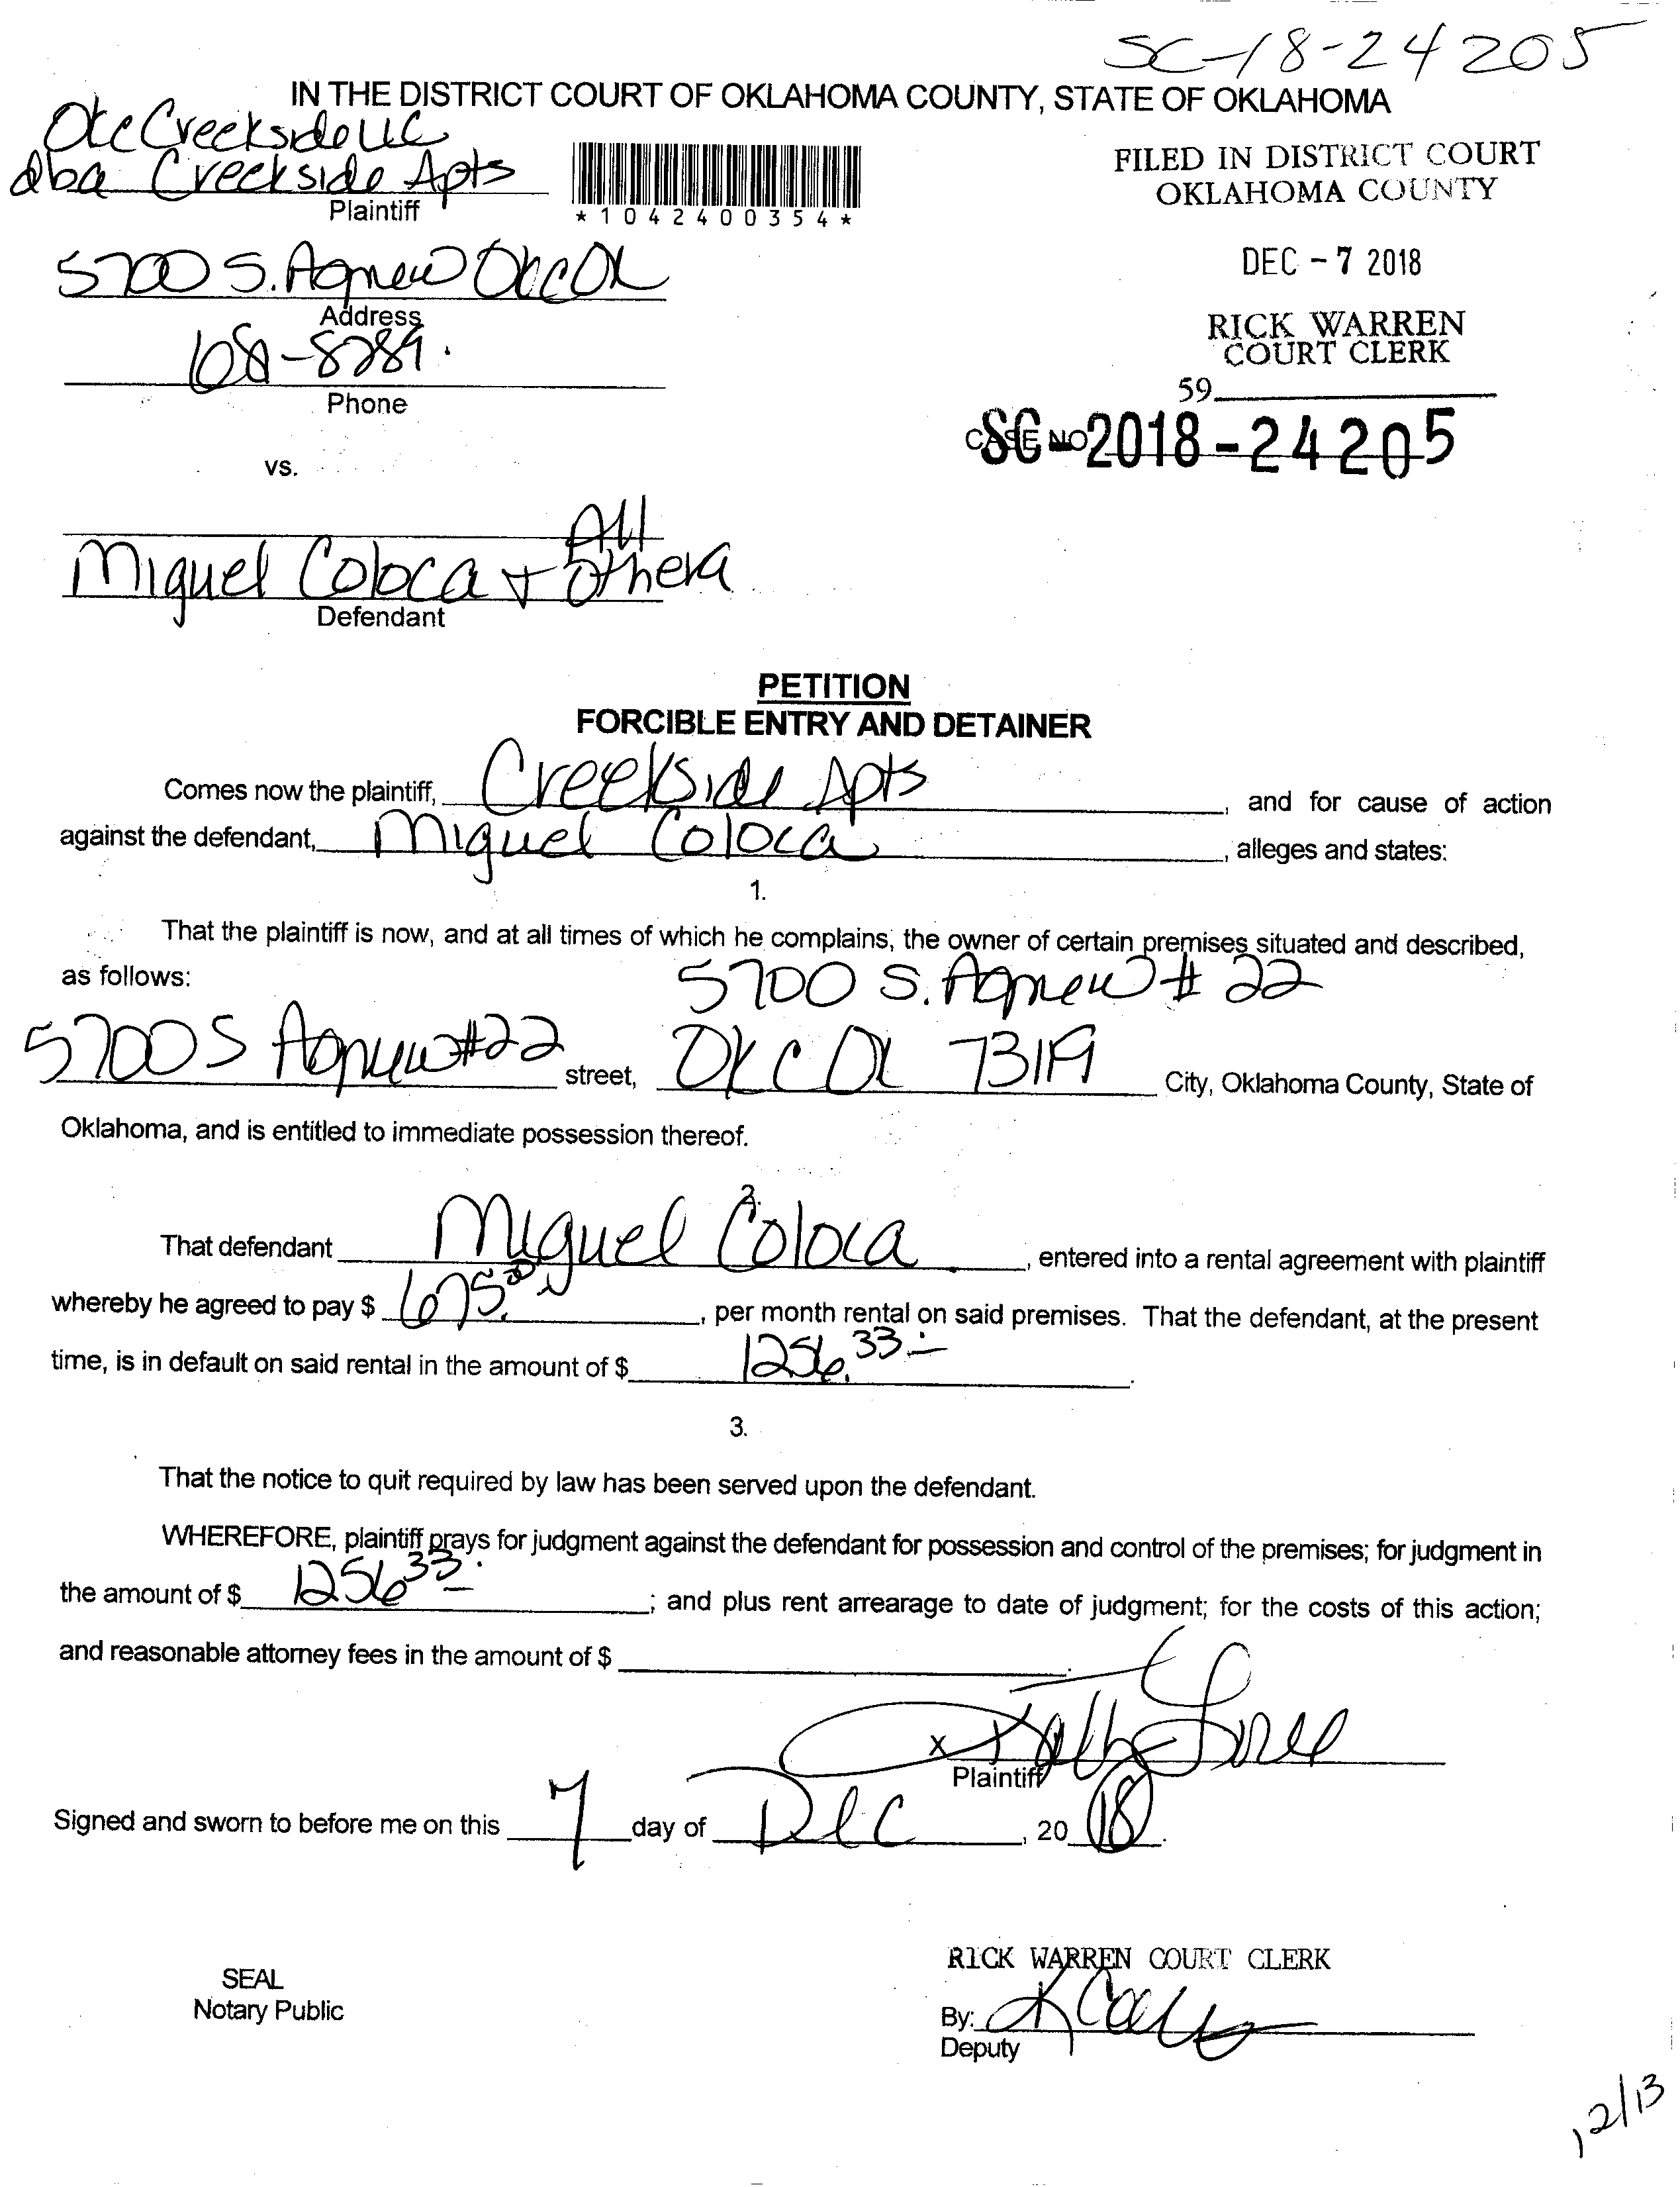 SC-18-24205
IN THE DISTRICT COURT OF OKLAHOMA COUNTY, STATE OF OKLAHOMA
Okc Creekside LLC
dba Creekside Apts
Plaintiff
*1042400354*
FILED IN DISTRICT COURT
OKLAHOMA COUNTY
DEC - 7 2018
RICK WARREN
COURT CLERK
59
CASE NO
SC-2018-24205
5700 S. Agnew OKC OK
Address
Phone
vs.
Miguel Coloca + All Others
Defendant
PETITION
FORCIBLE ENTRY AND DETAINER
Comes now the plaintiff, Creekside Apts, and for cause of action
against the defendant, Miguel Coloca, alleges and states:
1.
That the plaintiff is now, and at all times of which he complains, the owner of certain premises situated and described,
as follows:
5700 S. Agnew # 22
5700 S Agnew #22 street, OKC OK 73119 City, Oklahoma County, State of
Oklahoma, and is entitled to immediate possession thereof.
2.
That defendant Miguel Coloca, entered into a rental agreement with plaintiff
whereby he agreed to pay $ 675.00, per month rental on said premises. That the defendant, at the present
time, is in default on said rental in the amount of $ 1256.33.
3.
That the notice to quit required by law has been served upon the defendant.
WHEREFORE, plaintiff prays for judgment against the defendant for possession and control of the premises; for judgment in
the amount of $ 1256.33; and plus rent arrearage to date of judgment; for the costs of this action;
and reasonable attorney fees in the amount of $
X
Plaintiff
Signed and sworn to before me on this 7 day of Dec, 20 18.
SEAL
Notary Public
RICK WARREN COURT CLERK
By:
Deputy
12/13